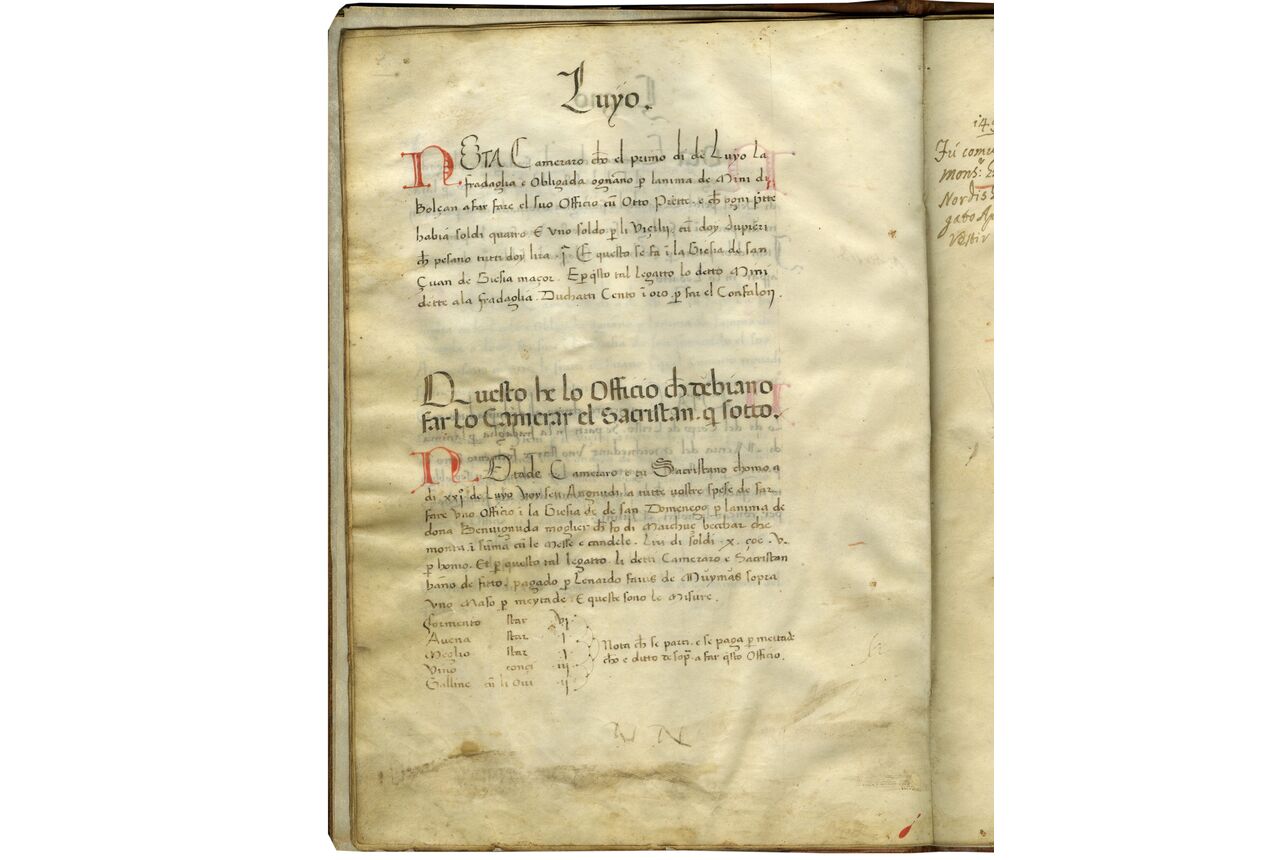 Luyo.
NOTA Cameraro chõ el primo di de Luyo la
fradaglia e Obligada ognano ꝑ lanima de Mini di
Bolçan a far fare el suo Officio cũ Otto Prette. e ch̃ ogni p̃tte
habia soldi quatro. E uno soldo ꝑ li Viçilij, cũ doy dupieri
ch̃ pesano tutti doy lira .j. E questo se fa ĩ la Giesia de san
Çuan de Giesia maçor. E ꝑ q̃sto tal legatto lo detto Mini
dette ala fradaglia. Duchatti Cento ĩ oro ꝑ far el Confalon.
Questo he lo Officio ch̃ debiano
far lo Camerar el Sacristan. q̃ sotto.
Nota de Cameraro e tu Sacristano chomo a
di xxj de Luyo voy seu Angnudi a tutte vostre spese de far
fare uno Officio i la Giesia de de san Domenego ꝑ lanima de
dona Benuignuda moglier ch̃ fo di Marchuç becchar che
monta i suma cũ le Messe e candele. Lir. di soldi .x. çoe .v.
ꝑ homo. Et ꝑ questo tal legatto. li detti Cameraro e Sacristan
hãno de fitto. pagado ꝑ Lenardo de Muymas sopra
uno Maso ꝑ meytade. E queste sono le Misure.
Formento star vj
Auena star j
Meglio star j
Vino conçi iij
Galline cũ li Oui ij
Nota ch̃ se parti. e se paga ꝑ meitade
cho e ditto de sop̃. a far q̃sto Officio.
Fú
mons: